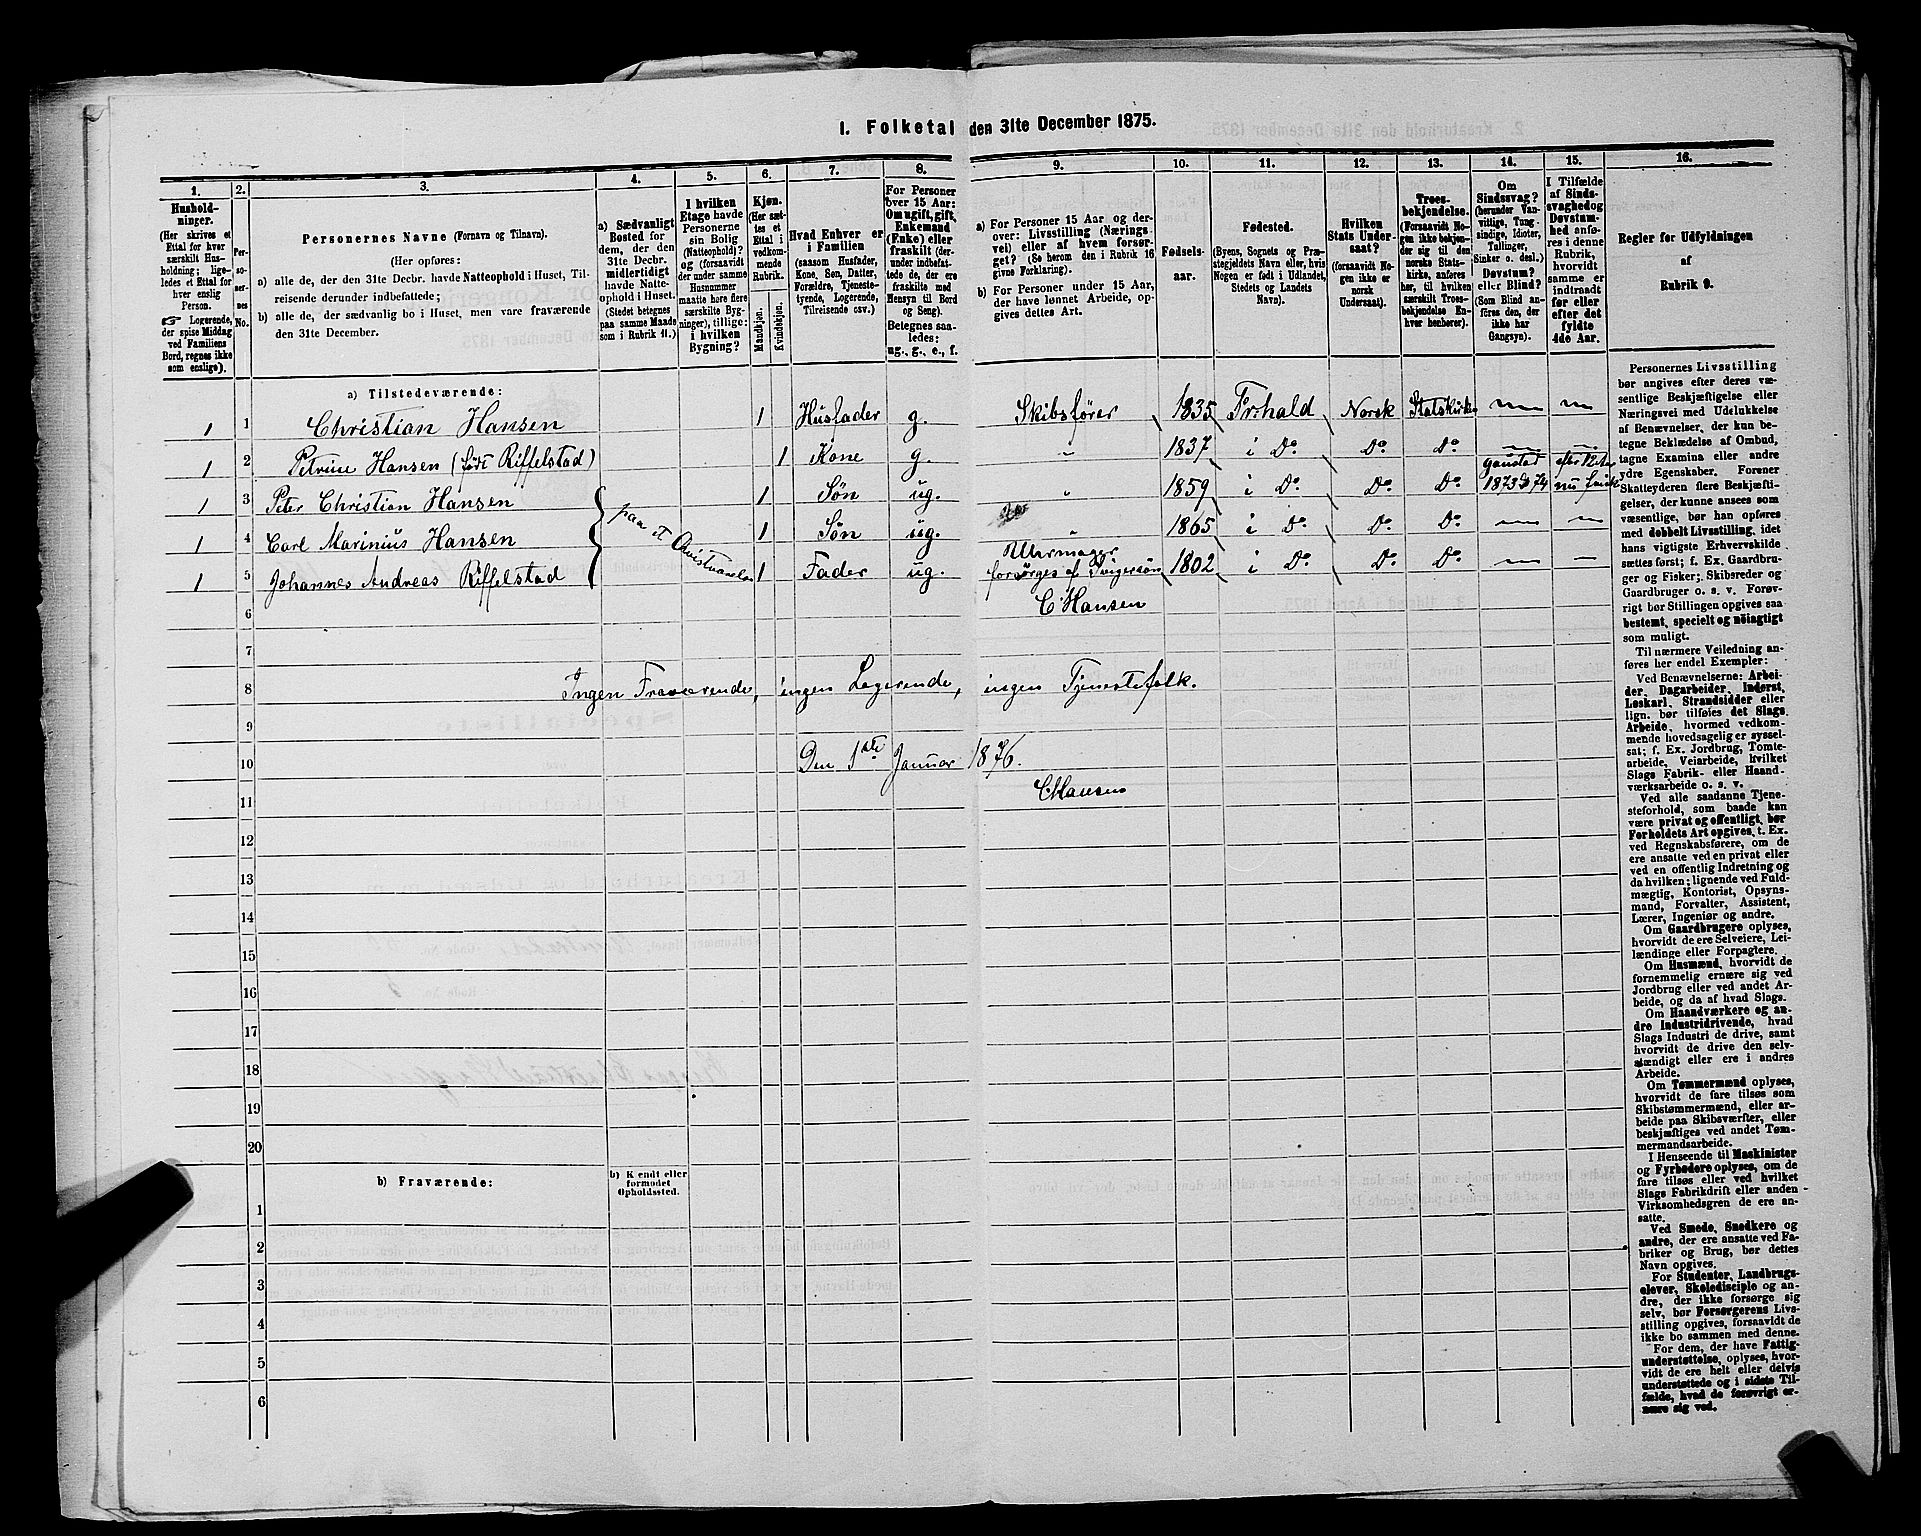 1. Folketal den 31te December 1875.
1.
2.
3.
4.
5.
6.
7.
8.
9.
10.
11.
12.
13.
14.
15.
16.
Hushold-
ninger.
(Her skrives et
Ettal for hver
særskilt Hus-
holdning; lige-
ledes et Ettal for
hver enslig
Person.
☞ Logerende,
der spise Middag
ved Familiens
Bord, regnes ikke
som enslige).
Per-
so-
ner-
nes
No.
Personernes Navne (Fornavn og Tilnavn).
(Her opføres:
a) alle de, der den 31te Decbr. havde Natteophold i Huset, Til-
reisende derunder indbefattede;
b) alle de, der sædvanlig bo i Huset, men vare fraværende
den 31te December.
a) Sædvanligt
Bosted for
dem, der den
31te Decbr.
midlertidigt
havde Natte-
ophold i Huset.
(Stedet betegnes
paa samme Maade
som i Rubrik 11.)
I hvilken
Etage havde
Personerne
sin Bolig
(Natteophold)?
og (forsaavidt
der under samme
Husnummer
maatte høre flere
særskilte Byg-
ninger), tillige:
i hvilken
Bygning?
Kjøn.
(Her sæt-
tes et
Ettal i
vedkom-
mende
Rubrik.
Mandkjøn.
Kvindekjøn.
Hvad Enhver er
i Familien
(saasom Husfader,
Kone, Søn, Datter,
Forældre, Tjeneste-
tyende, Logerende,
Tilreisende osv.)
For Personer
over 15 Aar:
Om ugift, gift,
Enkemand
(Enke) eller
fraskilt (der-
under indbefat-
tede de, der ere
fraskilte med
Hensyn til Bord
og Seng).
Betegnes saa-
ledes:
ug., g., e., f.
a) For Personer 15 Aar og der-
over: Livsstilling (Nærings-
vei) eller af hvem forsør-
get? (Se herom den i Rubrik 16
givne Forklaring).
b) For Personer under 15 Aar,
der have lønnet Arbeide, op-
gives dettes Art.
Fødsels-
aar.
Fødested.
(Byens, Sognets og Præ-
stegjeldets Navn eller, hvis
Nogen er født i Udlandet,
Stedets og Landets
Navn).
Hvilken
Stats Under-
saat?
(forsaavidt No-
gen ikke er
norsk
Undersaat).
Troes-
bekjendelse.
(Forsaavidt No-
gen ikke bekjen-
der sig til den
norske Stats-
kirke, anføres
her, til hvilken
særskilt Troes-
bekjendelse En-
hver henhører).
Om
Sindssvag?
(herunder Van-
vittige, Tung-
sindige, Idioter,
Tullinger,
Sinker o. desl.)
Døvstum?
eller Blind?
(Som Blind an-
føres den, der
ikke har
Gangsyn).
I Tilfælde
af Sinds-
svaghed og
Døvstum-
hed anfø-
res i denne
Rubrik,
hvorvidt
samme er
indtraadt
før eller
efter det
fyldte
4de Aar.
Regler for Udfyldningen
af
Rubrik 9.
a) Tilstedeværende:
1 1 Christian Hansen 1 Husfader g. Skibsfører 1835 Fr:hald Norsk Statskirken
1 2 Petrine Hansen (født Riffelstad) 1 Kone g. " 1837 i Do Do Do
1 3 Peter Christian Hansen 1 Søn ug. " 1859 i Do Do Do
gaustad 1873 74
1 4 Carl Marinius Hansen 1 Søn ug. " 1865 i Do Do Do
1 5 Johannes Andreas Riffelstad 1 Fader ug. Uhrmager forsørges af Svigersøn 1802 i Do Do Do
C Hansen
6
7
8 Ingen Fraværende, ingen Logerende, ingen Tjenestefolk.
9
10 Den 1ste Januar 1876.
11 CHansen
12
13
14
15
16
17
18
19
20
b) Fraværende:
b) Kjendt eller
formodet
Opholdssted.
1
2
3
4
5
6
Personernes Livsstilling
bør angives efter deres væ-
sentlige Beskjæftigelse eller
Næringsvei med Udelukkelse
af Benævnelser, der kun be-
tegne Beklædelse af Ombud,
tagne Examina eller andre
ydre Egenskaber. Forener
Skatteyderen flere Beskjæfti-
gelser, der kunne ansees som
væsentlige, bør han opføres
med dobbelt Livsstilling, idet
hans vigtigste Erhvervskilde
sættes først; f. Ex. Gaardbru-
ger og Fisker; Skibsreder og
Gaardbruger o. s. v. Forøv-
rigt bør Stillingen opgives saa
bestemt, specielt og nøiagtigt
som muligt.
Til nærmere Veiledning an-
føres her endel Exempler:
Ved Benævnelserne: Arbei-
der, Dagarbeider, Inderst,
Løskarl, Strandsidder eller
lign. bør tilføies det Slags
Arbeide, hvormed vedkom-
mende hovedsagelig er syssel-
sat; f. Ex. Jordbrug, Tomte-
arbeide, Veiarbeide, hvilket
Slags Fabrik- eller Haand-
værksarbeide o. s. v.
Ved alle saadanne Tjene-
steforhold, som baade kan
være privat og offentligt, bør
Forholdets Art opgives, t. Ex.
ved Regnskabsførere, om de
ere ansatte ved en privat eller
ved en offentlig Indretning og
da hvilken; lignende ved Fuld-
mægtig, Kontorist, Opsyns-
mand, Forvalter, Assistent,
Lærer, Ingeniør og andre.
Om Gaardbrugere oplyses,
hvorvidt de ere Selveiere, Lei-
lændinge eller Forpagtere.
Om Husmænd, hvorvidt de
fornemmelig ernære sig ved
Jordbrug eller ved andet Ar-
beide, og da af hvad Slags.
Om Haandværkere og an-
dre Industridrivende, hvad
Slags Industri de drive, samt
hvorvidt de drive den selv-
stændigt eller ere i andres
Arbeide.
Om Tømmermænd oplyses,
hvorvidt de fare tilsøs som
Skibstømmermænd, eller ar-
beide paa Skibsværfter, eller
beskjæftiges ved andet Tøm-
mermandsarbeide.
I Henseende til Maskinister
og Fyrbødere oplyses, om de
fare tilsøs eller ved hvilket
Slags Fabrikdrift eller anden
Virksomhedsgren de ere an-
satte.
Ved Smede, Snedkere og
andre, der ere ansatte ved Fa-
briker og Brug, bør dettes
Navn opgives.
For Studenter, Landbrugs-
elever, Skoledisciple og an-
dre, der ikke forsørge sig
selv, bør Forsørgerens Livs-
stilling opgives, forsaavidt de
ikke bo sammen med denne.
For dem, der have Fattig-
understøttelse, oplyses, hvor-
vidt de ere helt eller delvis
understøttede og i sidste Til-
fælde, hvad de forøvrigt er-
nære sig ved.